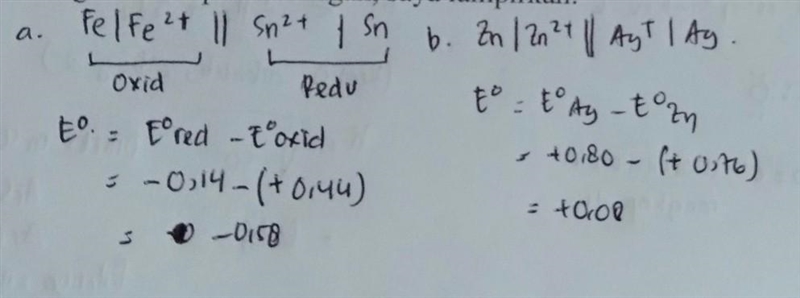 a. Fe | Fe²⁺ || Sn²⁺ | Sn
Oxid Redu
E⁰ = E⁰red - E⁰oxid
= -0,14 - (+0,44)
= -0,58
b. Zn | Zn²⁺ || Ag⁺ | Ag.
E⁰ = E⁰Ag - E⁰Zn
= +0,80 - (+0,76)
= +0,08